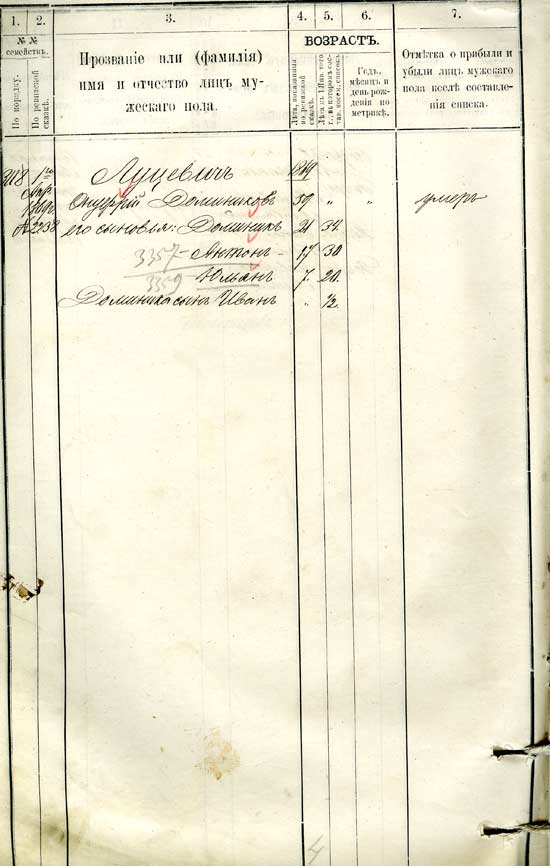 1. 2. 3. 4. 5. 6. 7.
№ № семействъ.
По порядку.
По ревизской сказкѣ.
Прозваніе или (фамилія)
имя и отчество лицъ му-
жескаго пола.
ВОЗРАСТЪ.
Лѣта, показанныя по ревизской сказкѣ.
Годъ, мѣсяцъ и день рож- денія по метрикѣ.
Отмѣтка о прибыли и
убыли лицъ мужскаго
пола послѣ составле-
нія списка.
Луцевичъ
Онуфрій Доминиковъ 59 " " умеръ
2238 его сыновья: Доминикъ 21 34.
3357 - Антонъ - 17 30
3359 Юльянъ 7. 20.
Доминика сынъ Иванъ " ½.